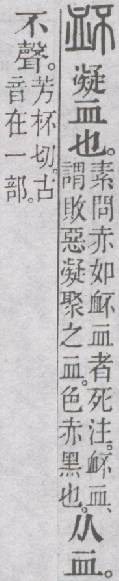 衃凝血也。素問赤如衃血者死注。衃血、
謂敗惡凝聚之血。色赤黑也。从血。
不聲。芳杯切。古
音在一部。